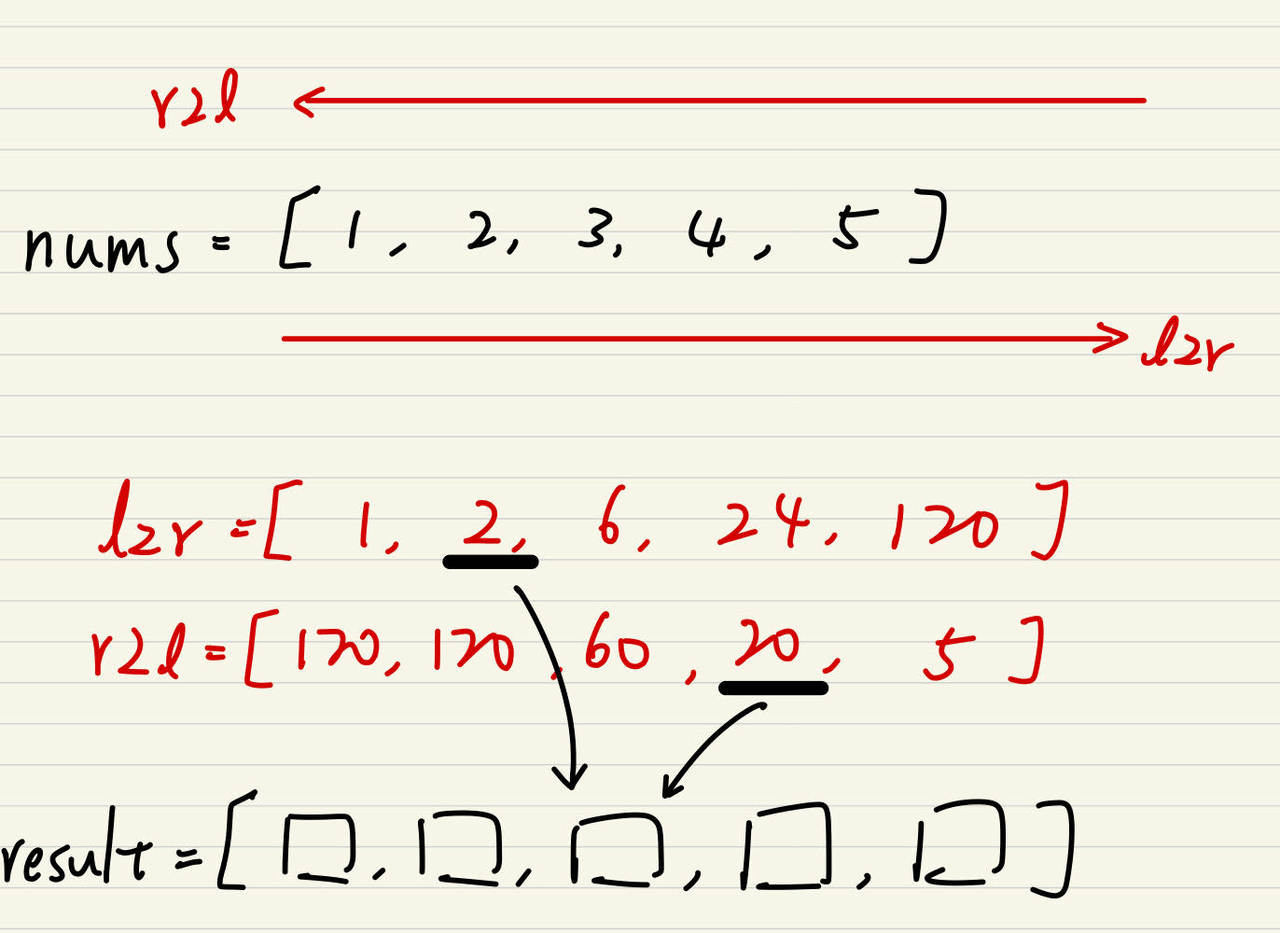 r2l
nums = [ 1, 2, 3, 4, 5 ]
l2r
l2r = [ 1, 2, 6, 24, 120 ]
r2l = [ 120, 120, 60, 20, 5 ]
result = [ □, □, □, □, □ ]